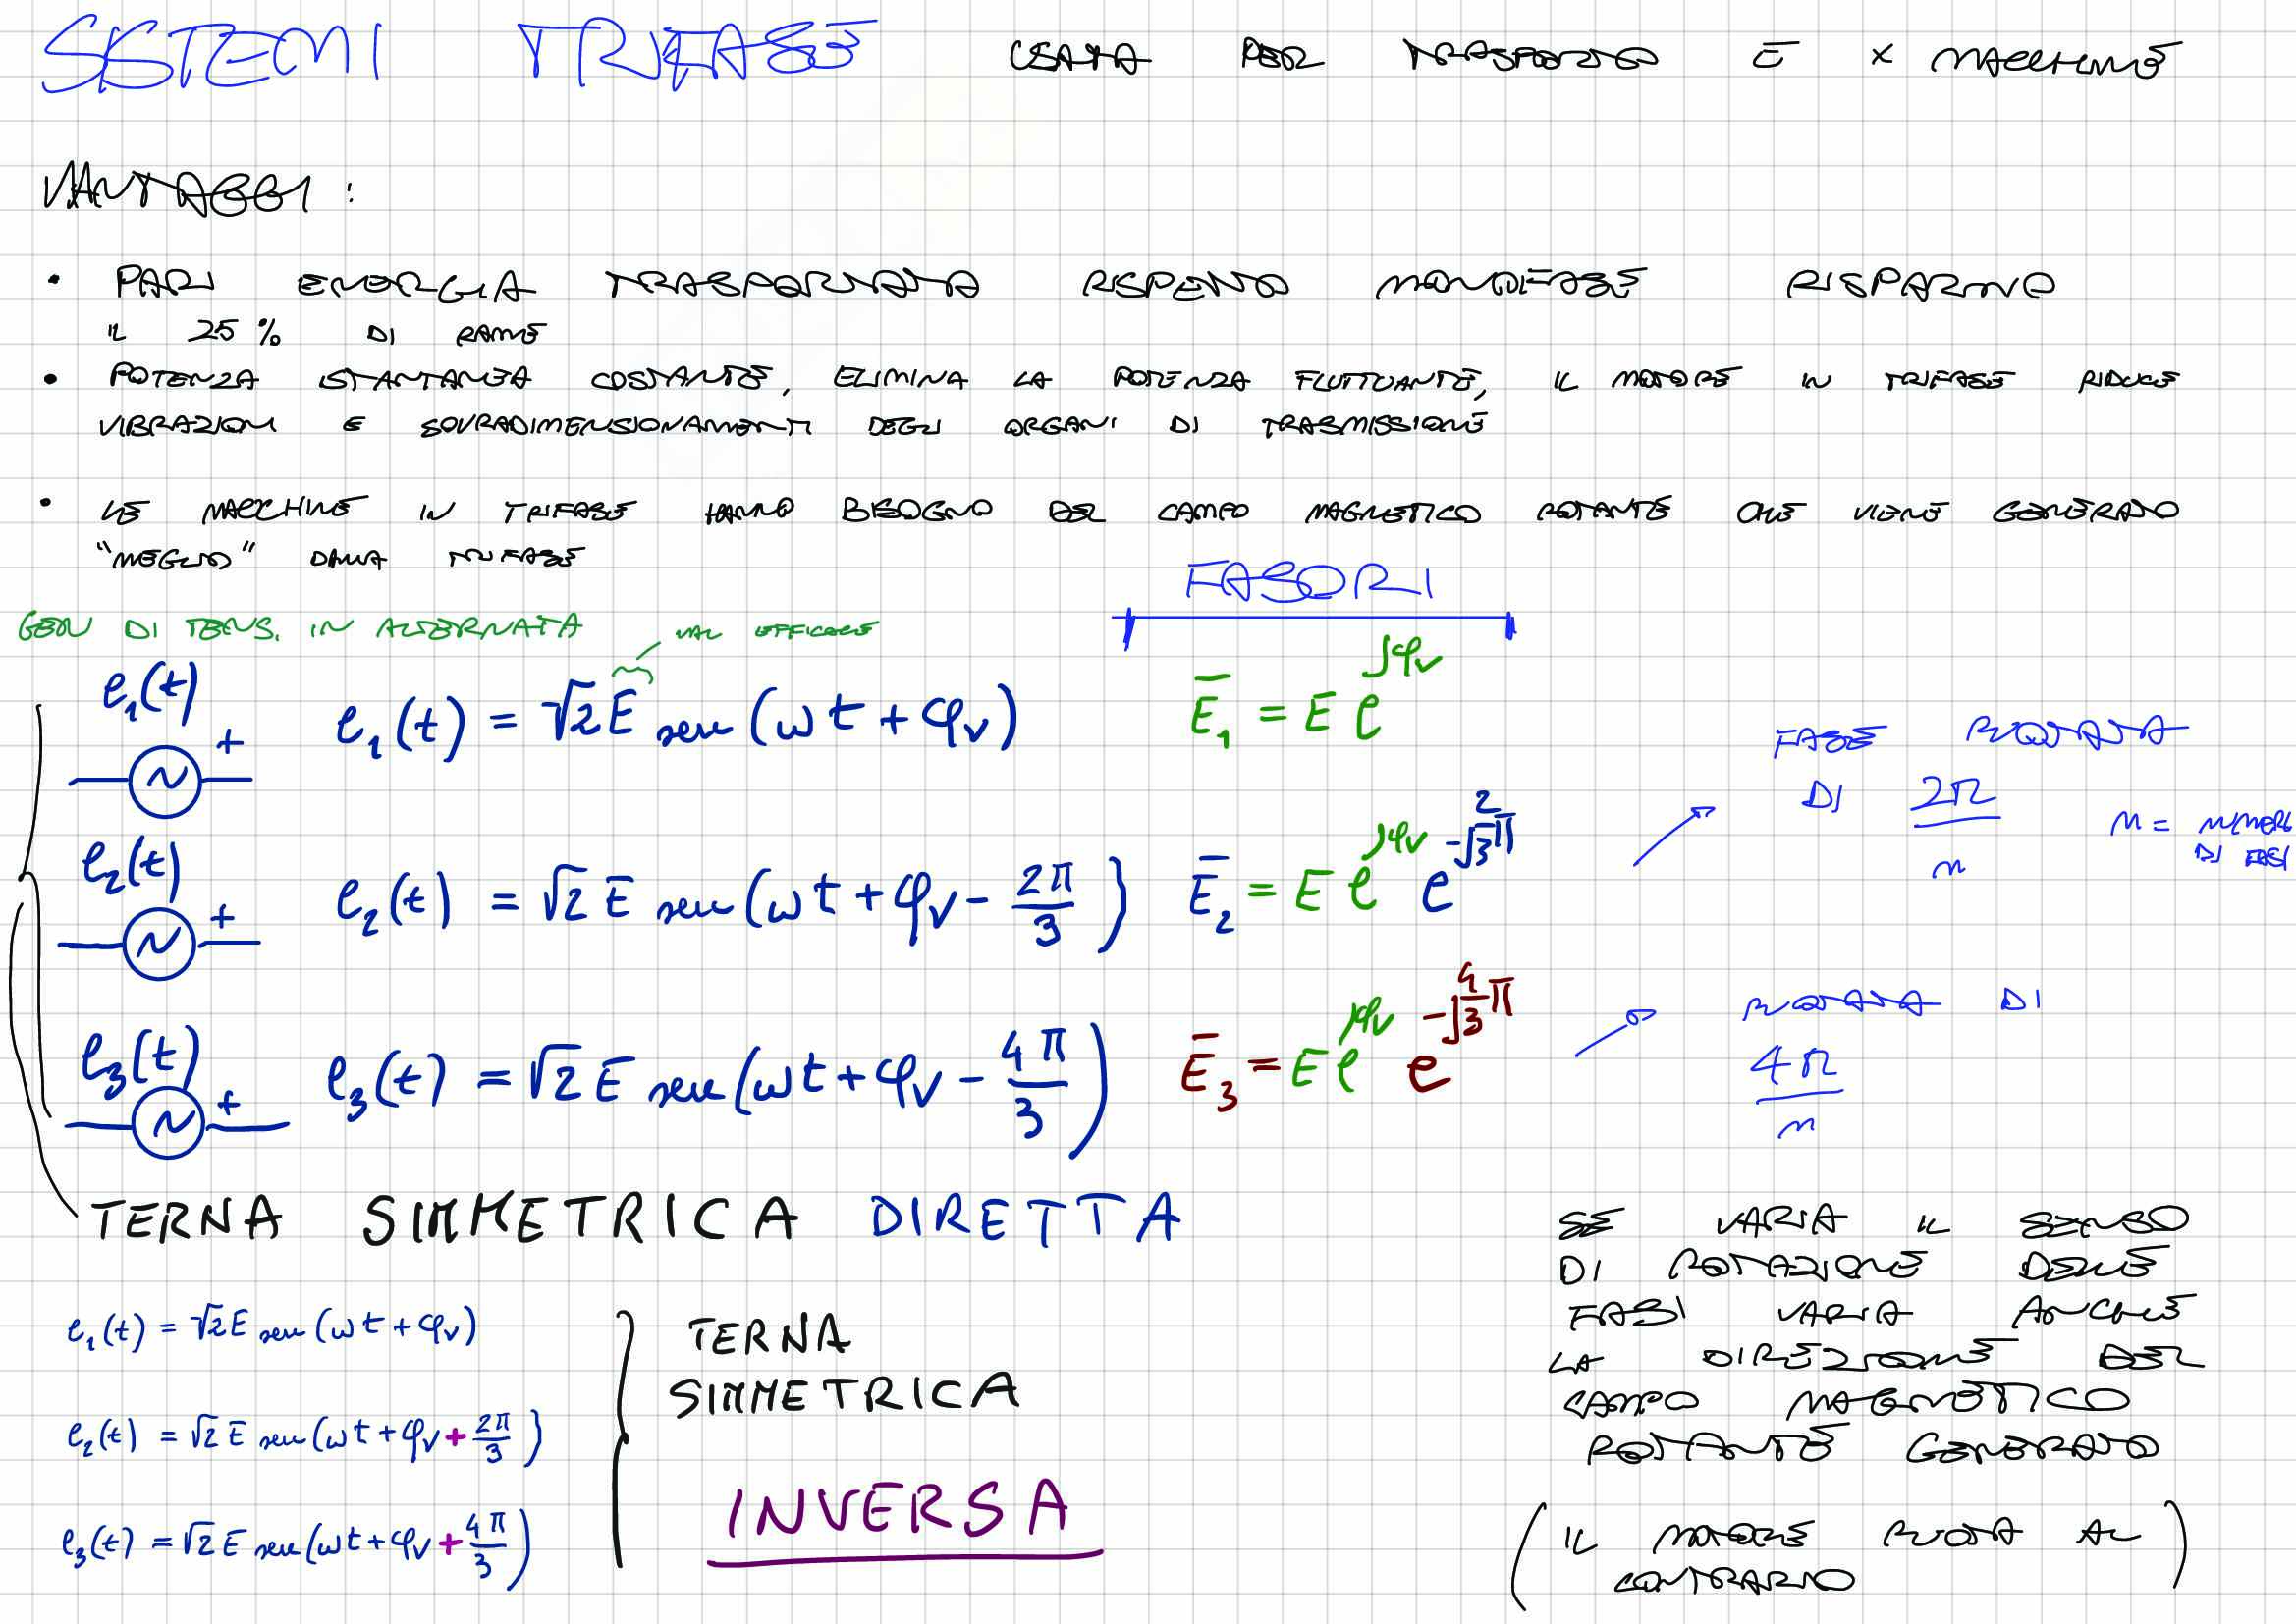 SISTEMI TRIFASE USATA PER TRASPORTO E X MACCHINE
VANTAGGI :
• PARI ENERGIA TRASPORTATA RISPETTO MONOFASE RISPARMIO
IL 25 % DI RAME
• POTENZA ISTANTANEA COSTANTE, ELIMINA LA POTENZA FLUTTUANTE, IL MOTORE IN TRIFASE RIDUCE
VIBRAZIONI E SOVRADIMENSIONAMENTI DEGLI ORGANI DI TRASMISSIONE
• LE MACCHINE IN TRIFASE HANNO BISOGNO DEL CAMPO MAGNETICO ROTANTE CHE VIENE GENERATO
"MEGLIO" DALLA TRIFASE
FASORI
GEN DI TENS. IN ALTERNATA VAL EFFICACE
e₁(t) +
e₁(t) = √2 E sen (ωt + φᵥ)
E̅₁ = E e^{jφᵥ}
FASE RUOTATA
DI 2π/n
n = NUMERO
DI FASI
e₂(t) +
e₂(t) = √2 E sen (ωt + φᵥ - 2π/3)
E̅₂ = E e^{jφᵥ} e^{-j 2/3 π}
e₃(t) +
e₃(t) = √2 E sen (ωt + φᵥ - 4π/3)
E̅₃ = E e^{jφᵥ} e^{-j 4/3 π}
RUOTATA DI
4π/n
TERNA SIMMETRICA DIRETTA
e₁(t) = √2 E sen (ωt + φᵥ)
e₂(t) = √2 E sen (ωt + φᵥ + 2π/3)
e₃(t) = √2 E sen (ωt + φᵥ + 4π/3)
TERNA
SIMMETRICA
INVERSA
SE VARIA IL SENSO
DI ROTAZIONE DELLE
FASI VARIA ANCHE
LA DIREZIONE DEL
CAMPO MAGNETICO
ROTANTE GENERATO
( IL MOTORE RUOTA AL
CONTRARIO )